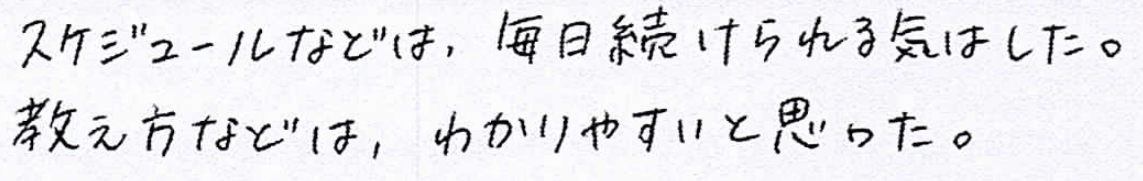 スケジュールなどは,毎日続けられる気はした。
教え方などは,わかりやすいと思った。